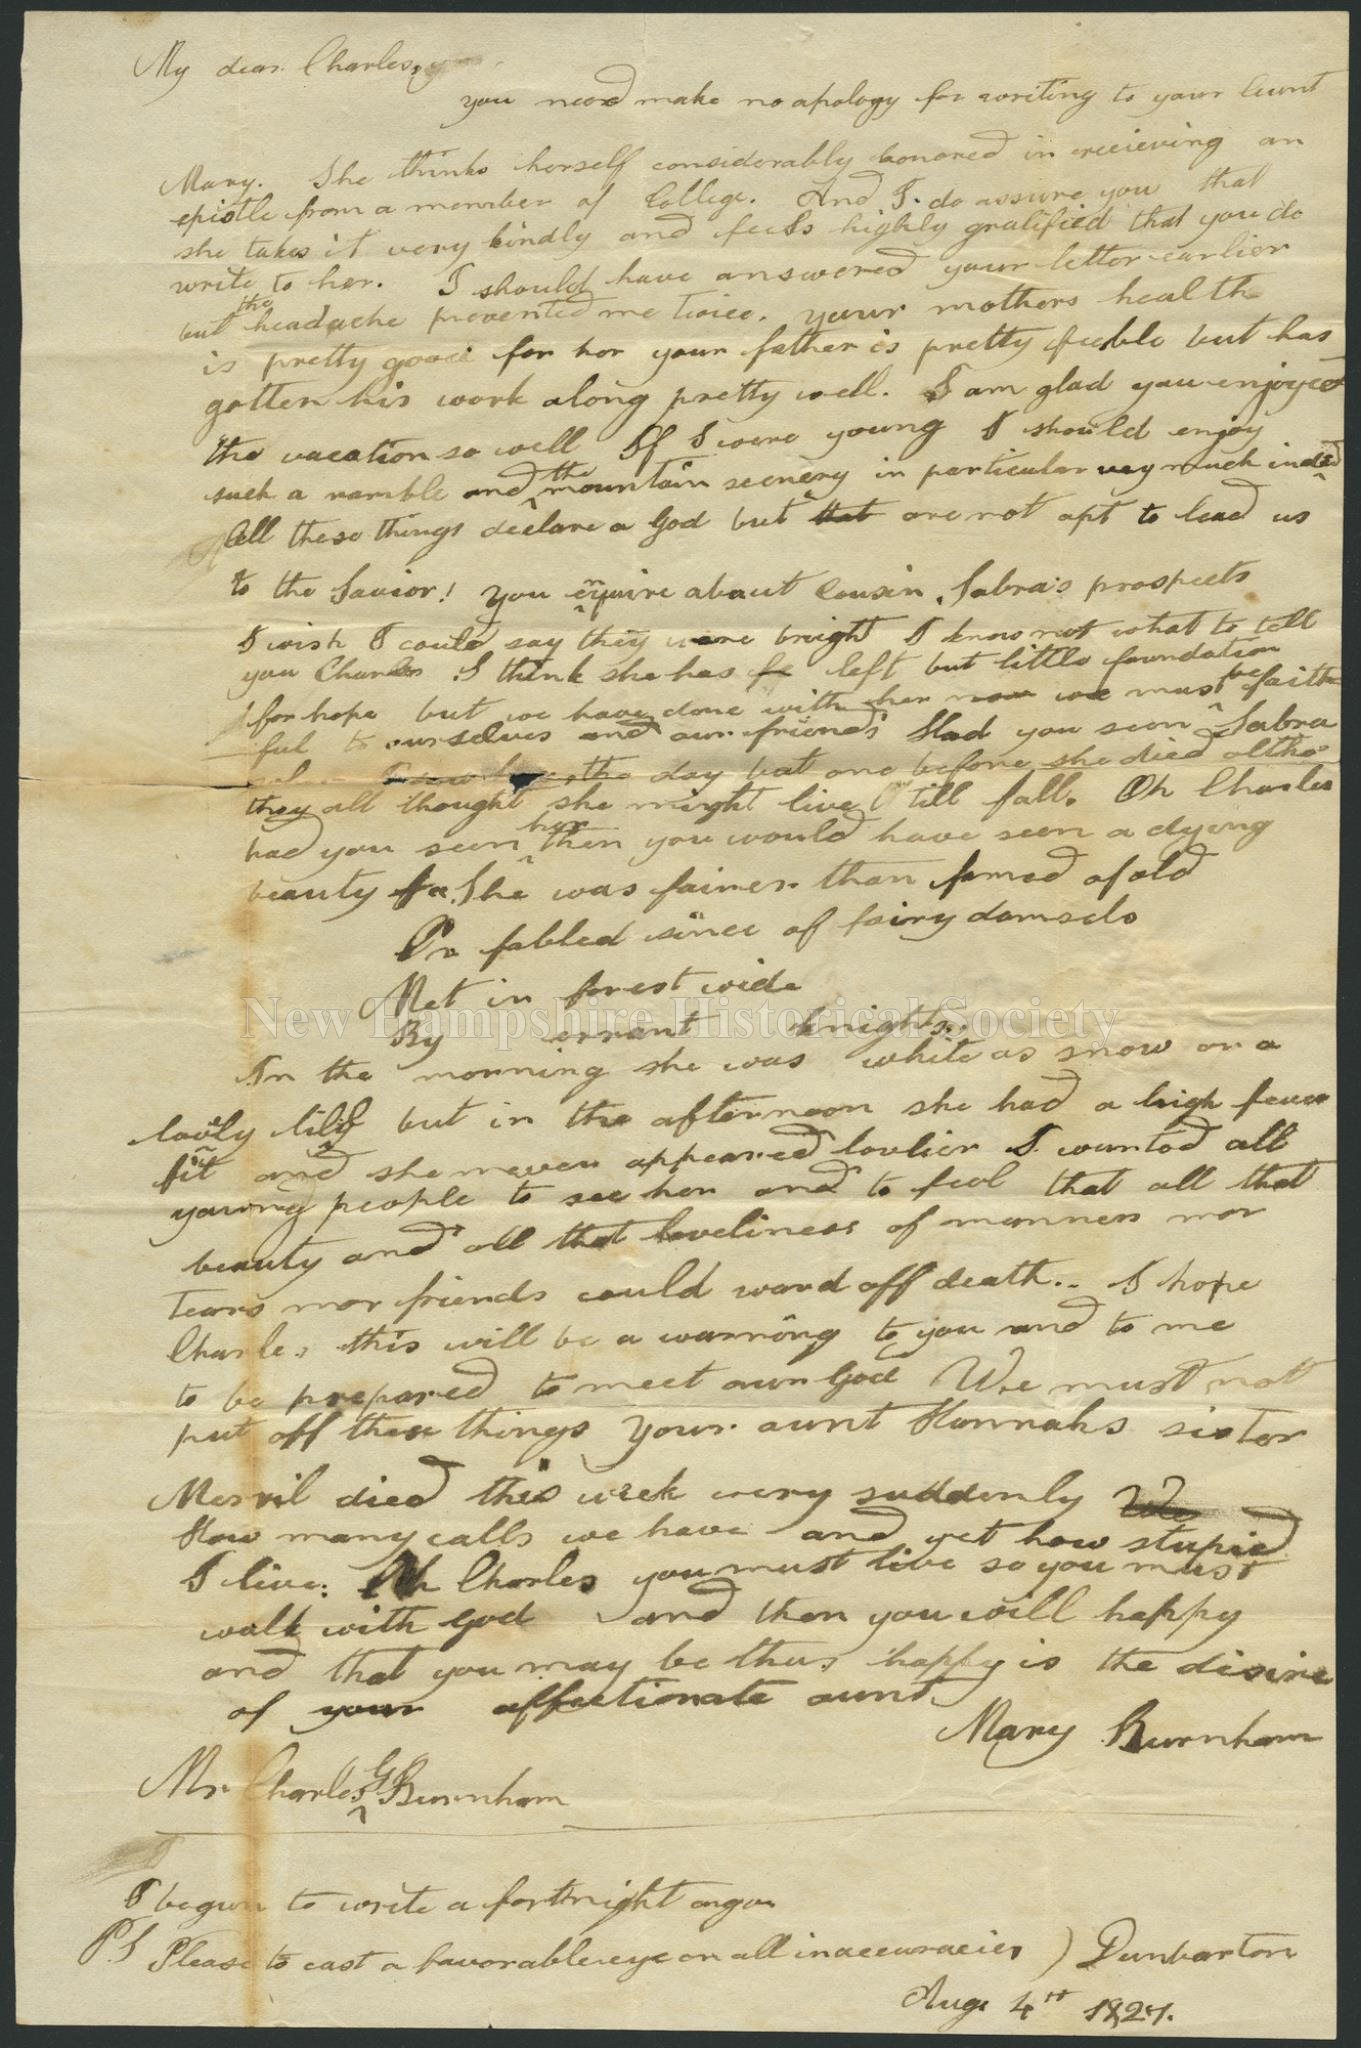 My dear Charles,
you need make no apology for writing to your Aunt
Mary. She thinks herself considerably honored in recieving an
epistle from a member of College. And I do assure you that
she takes it very kindly and feels highly gratified that you do
write to her. I should have answered your letter earlier
but the headache prevented me twice. your mothers health
is pretty good for her your father is pretty feeble but has
gotten his work along pretty well. I am glad you enjoyed
the vacation so well If I were young I should enjoy
such a ramble and the mountain scenery in particular very much indeed
All these things declare a God but that are not apt to lead us
to the Savior! You enquire about Cousin Sabra's prospects
I wish I could say they were bright I know not what to tell
you Charles I think she has left but little foundation
for hope but we have done with her now we must be faith
ful to ourselves and our friends Had you seen Sabra
the day but one before she died altho
they all thought she might live till fall. Oh Charles
had you seen her then you would have seen a dying
beauty She was fairer than famed of old
Or fabled since of fairy damsels
Met in forest wide
By errant knights.
In the morning she was white as snow or a
lovely lily but in the afternoon she had a high fever
fit and she never appeared lovlier I wanted all
young people to see her and to feel that all that
beauty and all that loveliness of manners nor
tears nor friends could ward off death.. I hope
Charles this will be a warning to you and to me
to be prepared to meet our God We must not
put off these things Your aunt Hannahs sister
Merril died this week very suddenly We
How many calls we have and yet how stupid
I live. Oh Charles you must live so you must
walk with God and then you will happy
and that you may be thus happy is the disire
of your affectionate aunt
Mary Burnham
Mr. Charles G Burnham
I begun to write a fortnight ago
P.S Please to cast a favorable eye on all inaccuracies ) Dunbarton
Aug. 4th 1827.
New Hampshire Historical Society